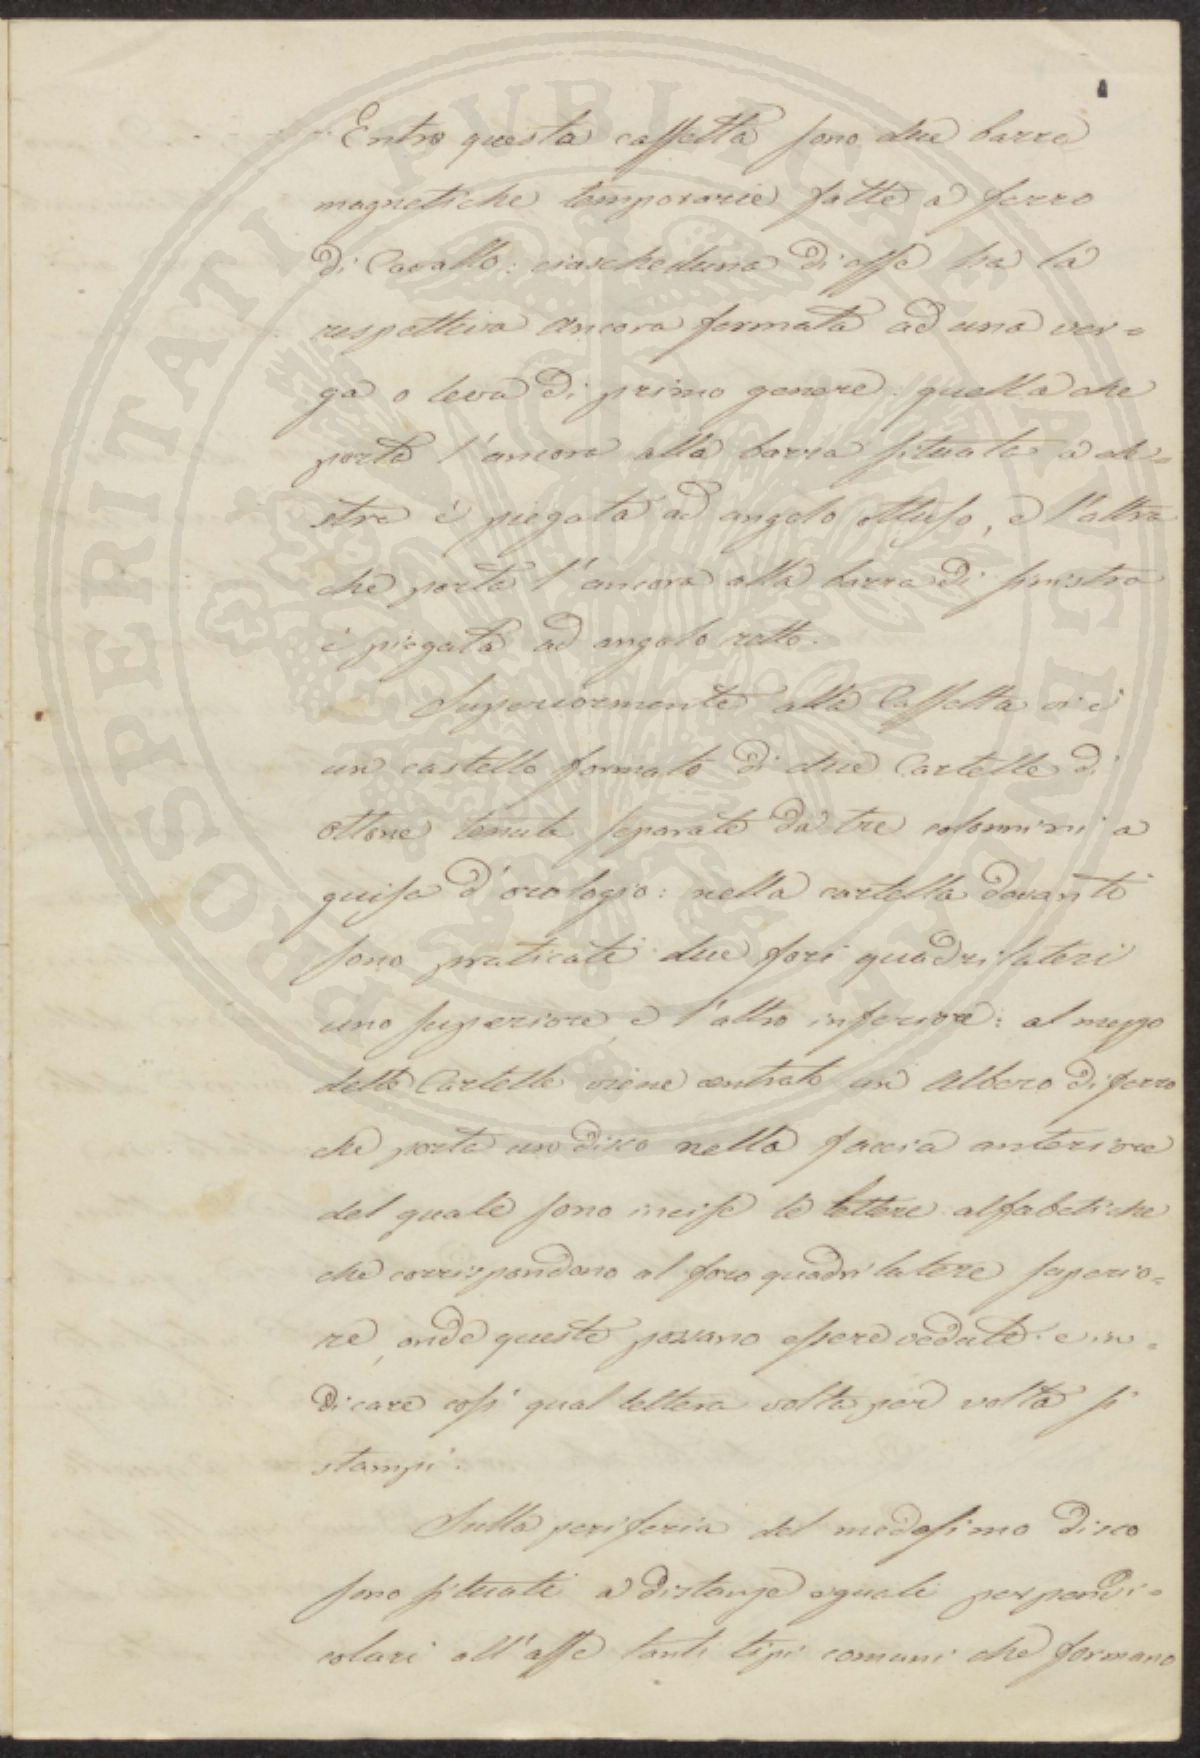 Entro questa cassetta sono due barre
magnetiche temporarie fatte a ferro
di Cavallo: ciascheduna di esse ha la
respettiva ancora fermata ad una ver=
ga o leva di primo genere: quella che
porta l'ancora alla barra situata a de=
stra è piegata ad angolo ottuso, e l'altra
che porta l'ancora alla barra di sinistra
è piegata ad angolo retto.
Superiormente alla Cassetta vi è
un castello formato di due Cartelle di
ottone tenute separate da tre colonnini a
guisa d'orologio: nella cartella davanti
sono praticati due fori quadrilateri
uno superiore, e l'altro inferiore: al mezzo
delle Cartelle viene centrato un Albero di ferro
che porta un disco nella faccia anteriore
del quale sono incise le lettere alfabetiche
che corrispondono al foro quadrilatere superio=
re, onde queste possano essere vedute e in=
dicare così qual lettera volta per volta si
stampi.
Sulla periferia del medesimo disco
sono situati a distanze eguali perpendi=
colari all'asse tanti tipi comuni che formano
PROSPERITATI PUBLICAE AUGENDAE